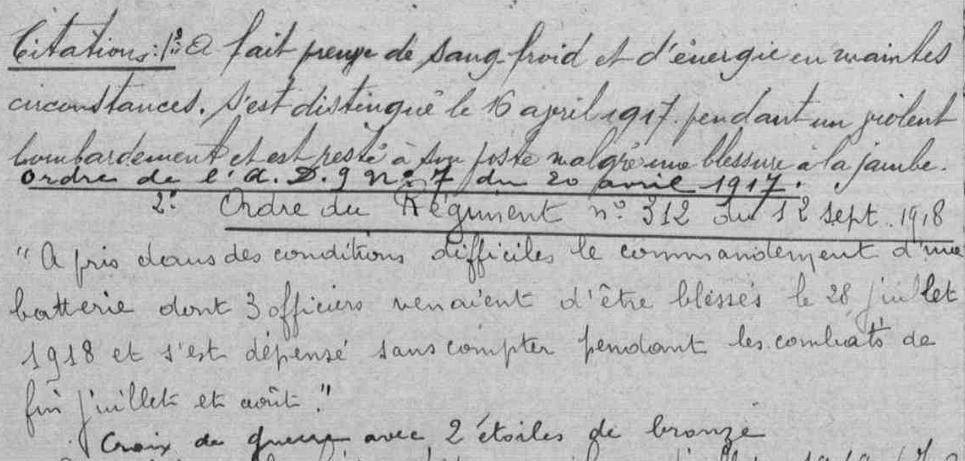 Citations: 1º: A fait preuve de sang-froid et d'énergie en maintes
circonstances. S'est distingué le 16 april 1917 pendant un violent
bombardement et est resté à son poste malgré une blessure à la jambe.
Ordre de l'A.D. 9 nº 7 du 20 avril 1917.
2º Ordre du Régiment nº 312 du 12 sept. 1918
"A pris dans des conditions difficiles le commandement d'une
batterie dont 3 officiers venaient d'être blessés le 28 juillet
1918 et s'est dépensé sans compter pendant les combats de
fin juillet et août."
Croix de guerre avec 2 étoiles de bronze